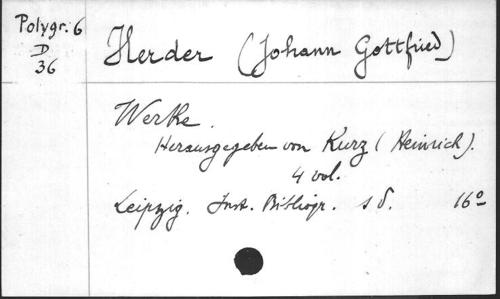 Polygr. 6
D
36
Herder (Johann Gottfried)
Werke.
Herausgegeben von Kurz (Heinrich).
4 vol.
Leipzig. Inst. Bibliogr. s d. 16º